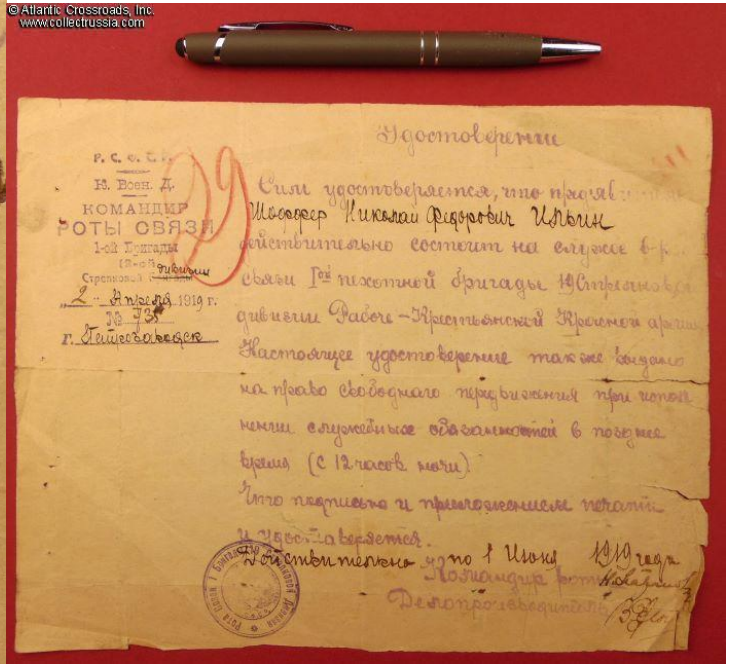 © Atlantic Crossroads, Inc.
www.collectrussia.com
Удостоверение
Р. С. Ф. С. Р.
Ю. Воен. Д.
КОМАНДИР
РОТЫ СВЯЗИ
1-ой Бригады
Стрелковой дивизии
"2" Апреля 1919 г.
№ 73
г. Петрозаводск
29
Сим удостоверяется, что
Шоффер Николай Федорович Ильин
действительно состоит на службе в
связи 1ой пехотной бригады 19 Стрелковой
дивизии Рабоче-Крестьянской Красной армии
Настоящее удостоверение также выдано
на право свободнаго передвижения при испол
нении служебных обязанностей в позднее
время (с 12 часов ночи)
Что подписью и приложением печати
и удостоверяется.
Действительно по 1 Июня 1919 года
Командир роты
Делопроизводитель